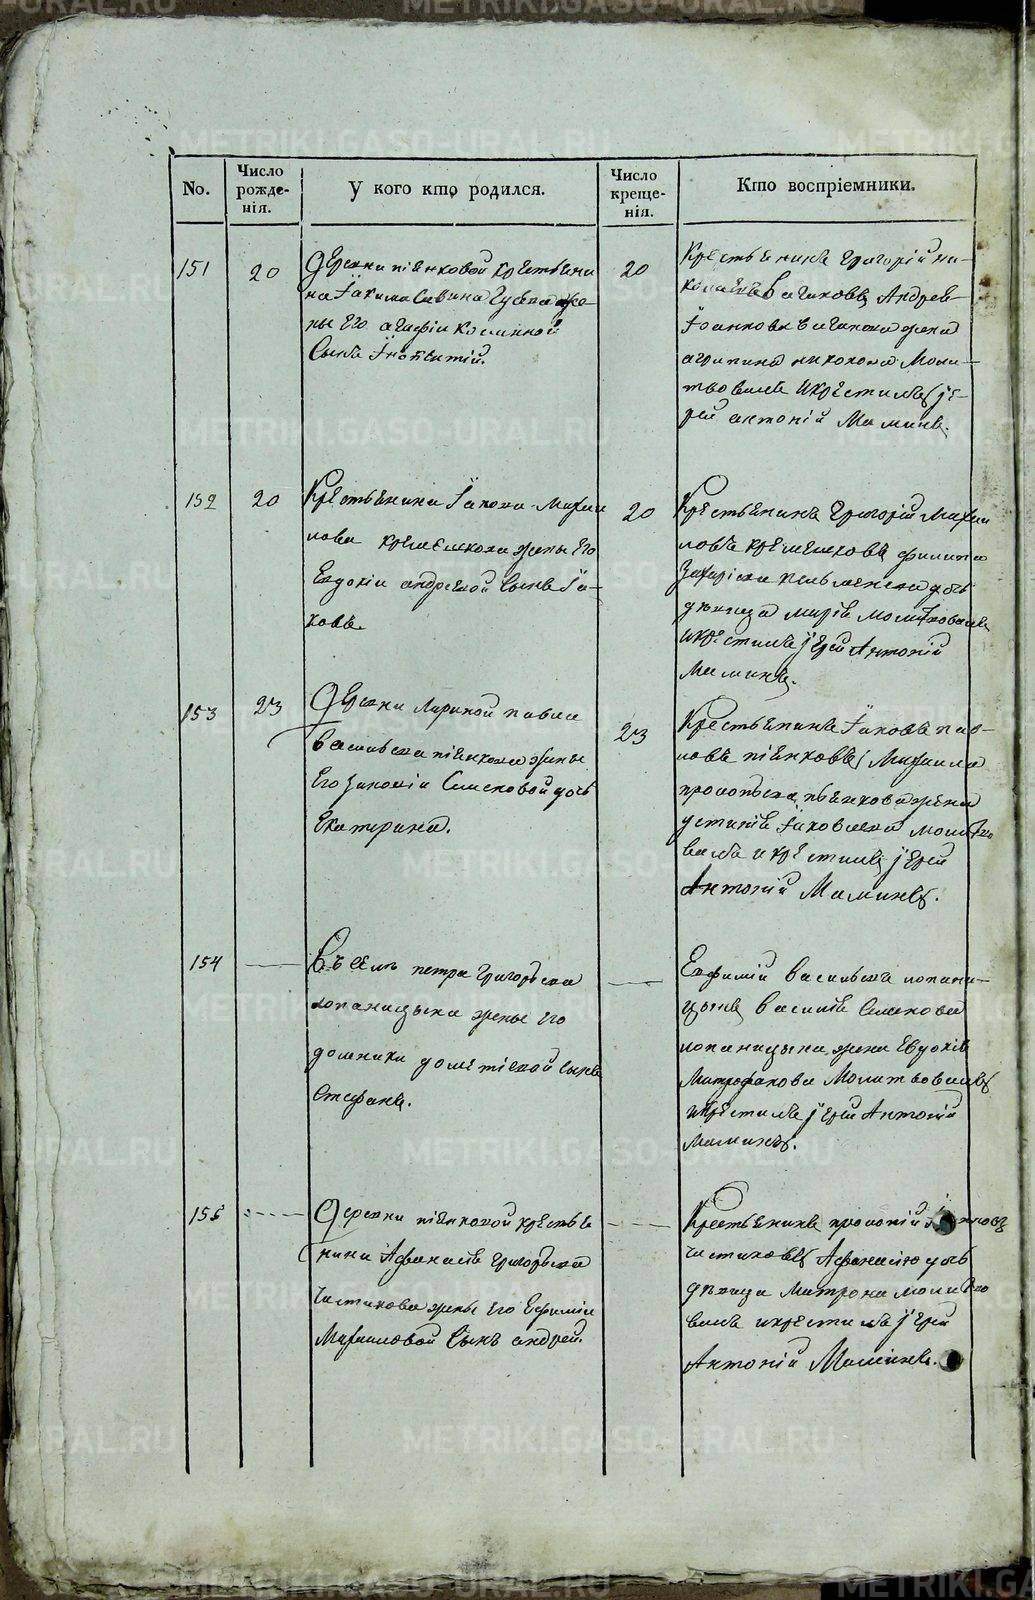 No.
Число рожде-нія.
У кого кто родился.
Число креще-нія.
Кто воспріемники.
151
20
Деревни пьянковой крестьяни
на Іакима Савина Гусева же-
ны его агафіи козминой
Сынъ Інокентій.
20
Крестьянинъ Григорій ни-
Андрея
Іоаннова жена
агрипина Моли-
твовалъ и крестилъ іе-
рей антоній Маминъ.
152
20
Крестьянина Іакова Михаи
лова жены его
Евдокіи андреевой Сынъ Іа-
ковъ.
20
Крестьянинъ Григорій Михаи
ловъ филипа
дочь
дѣвица марія молитвовалъ
и крестилъ іерей Антоній
Маминъ.
153
23
Деревни Лариной павла
васильева пьянкова жены
его Семеновой дочь
Екатерина.
23
Крестьянинъ Іаковъ пав-
ловъ пьянковъ, Михаила
прокопьева пьянкова жена
устинія Іаковлева молитво
валъ и крестилъ іерей
Антоній Маминъ.
154
Въ селѣ петра Григорьева
копаницына жены его
домники дометіевой сынъ
Стефанъ.
Евфимій васильевъ копани-
цынъ василія Семенова
копаницына жена Евдокія
Митрофанова Молитвовалъ
и крестилъ іерей Антоній
Маминъ.
155
Деревни пьянковой крестья
нина Афанасія Григорьева
Чистякова жены его Ефиміи
Михаиловой Сынъ андрей.
Крестьянинъ прокопій
Чистяковъ, Афанасія дочь
дѣвица Матрона молитво
валъ и крестилъ іерей
Антоній Маминъ.
METRIKI.GASO-URAL.RU